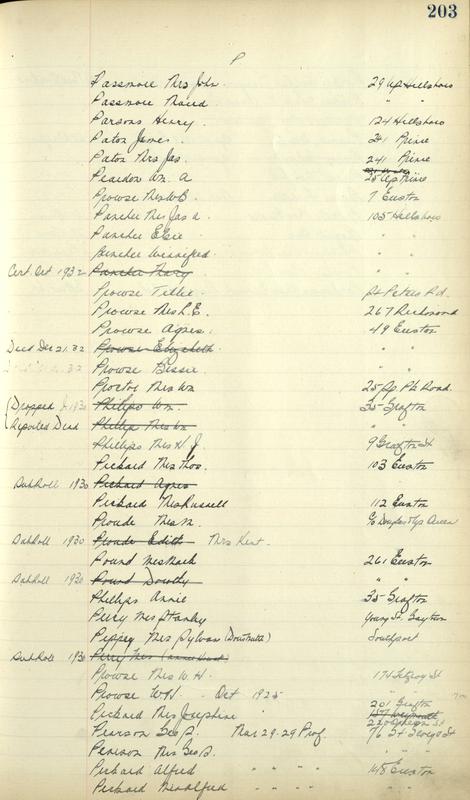 203
P
Passmore Mrs John. 29 Up Hillsboro
Passmore Maud " "
Parsons Henry. 124 Hillsboro
Paton James. 241 Prince
Paton Mrs Jas. 241 Prince
Peardon Wm. A 25 Up Prince
Prowse Mrs W.B. 7 Euston
Panchee Mrs Jas A. 105 Hillsboro
Panchee Elsie " "
Panchee Winnifred. " "
Cert. Oct 1932 Panchee Mary " "
Prowse Tillie. St Peters Rd.
Prowse Mrs L.E. 267 Richmond
Prowse Agnes. 49 Euston
Died Dec 21. 32 Prowse Elizabeth " "
Prowse Bessie. " "
Proctor Mrs Wm 25 Up. Pt. Road.
(Dropped 1930 Phillips Wm. 35 Grafton
(Reported Dead Phillips Mrs Wm " "
Phillips Mrs H J. 9 Grafton St
Pickard Mrs Thos. 103 Euston
Sub Roll 1930 Pickard Agnes
Pickard Mrs Russell 112 Euston
Proude Mrs M.
Sub Roll 1930 Proude Edith Mrs Kent.
Pound Mrs Mark 261 Euston
Sub Roll 1930 Pound Dorothy " "
Phillips Annie 35 Grafton
Perry Mrs Stanley Young St.
Peppey Mrs Sylvan Southport
Sub Roll 1930 Perry Mrs
Prowse Mrs W. H. 174 Fitzroy St
Prowse W.H. - Oct 1925
Pickard Mrs Josephine 201 Grafton
Pearson Geo S. Mar 29-29 Prof.
Pearson Mrs Geo S.
Pickard Alfred " " " Euston
Pickard Mrs Alfred " " "